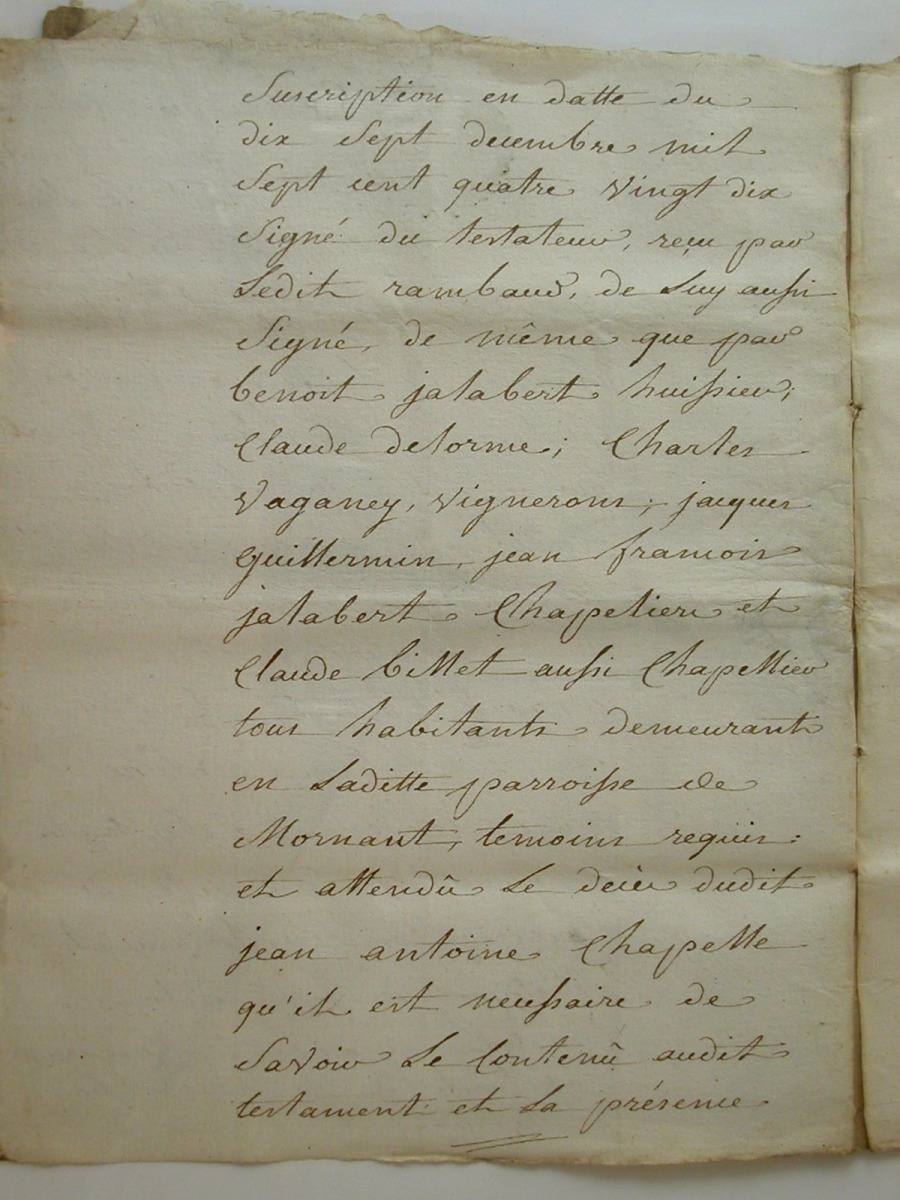 Suscription en datte du
dix Sept decembre mil
Sept cent quatre vingt dix
Signé du testateur, reçu par
Ledit rambaud, de Luy aussi
Signé, de même que par
benoit jalabert huissier,
Claude delorme; Charles
Vaganey, vignerons; jacques
guillermin, jean francois
jalabert Chapeliers et
Claude billet aussi Chapellier
tous habitants demeurant
en Laditte parroisse de
Mornant, temoins requis:
et attendû Le décès dudit
jean antoine Chapelle
qu'il est necessaire de
Savoir Le Contenû audit
testament et La présence